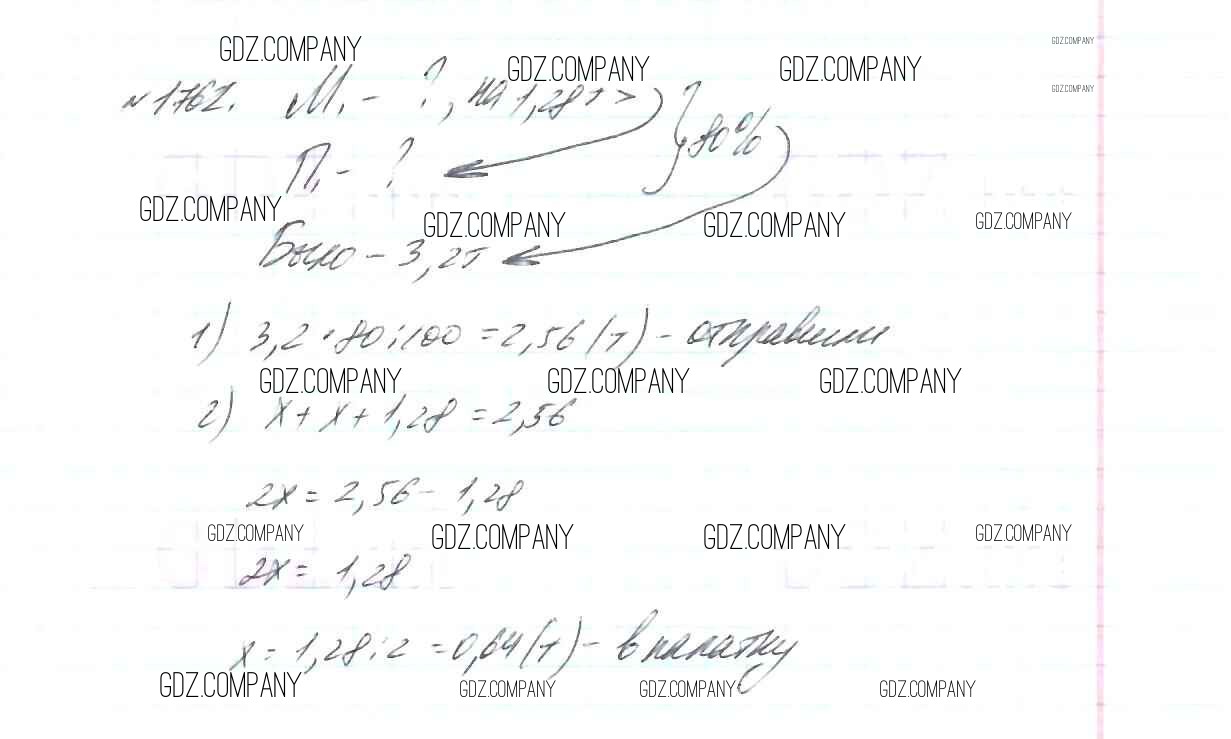 GDZ.COMPANY GDZ.COMPANY
GDZ.COMPANY GDZ.COMPANY
GDZ.COMPANY
№1762. М. – ?, на 1,28т > ? 80%
П. – ?
GDZ.COMPANY GDZ.COMPANY GDZ.COMPANY GDZ.COMPANY
Было – 3,2т
1) 3,2 · 80 : 100 = 2,56 (т) – отправили
GDZ.COMPANY GDZ.COMPANY GDZ.COMPANY
2) х + х + 1,28 = 2,56
2х = 2,56 – 1,28
GDZ.COMPANY GDZ.COMPANY GDZ.COMPANY GDZ.COMPANY
2х = 1,28
х = 1,28 : 2 = 0,64 (т) – в палатку
GDZ.COMPANY GDZ.COMPANY GDZ.COMPANY GDZ.COMPANY